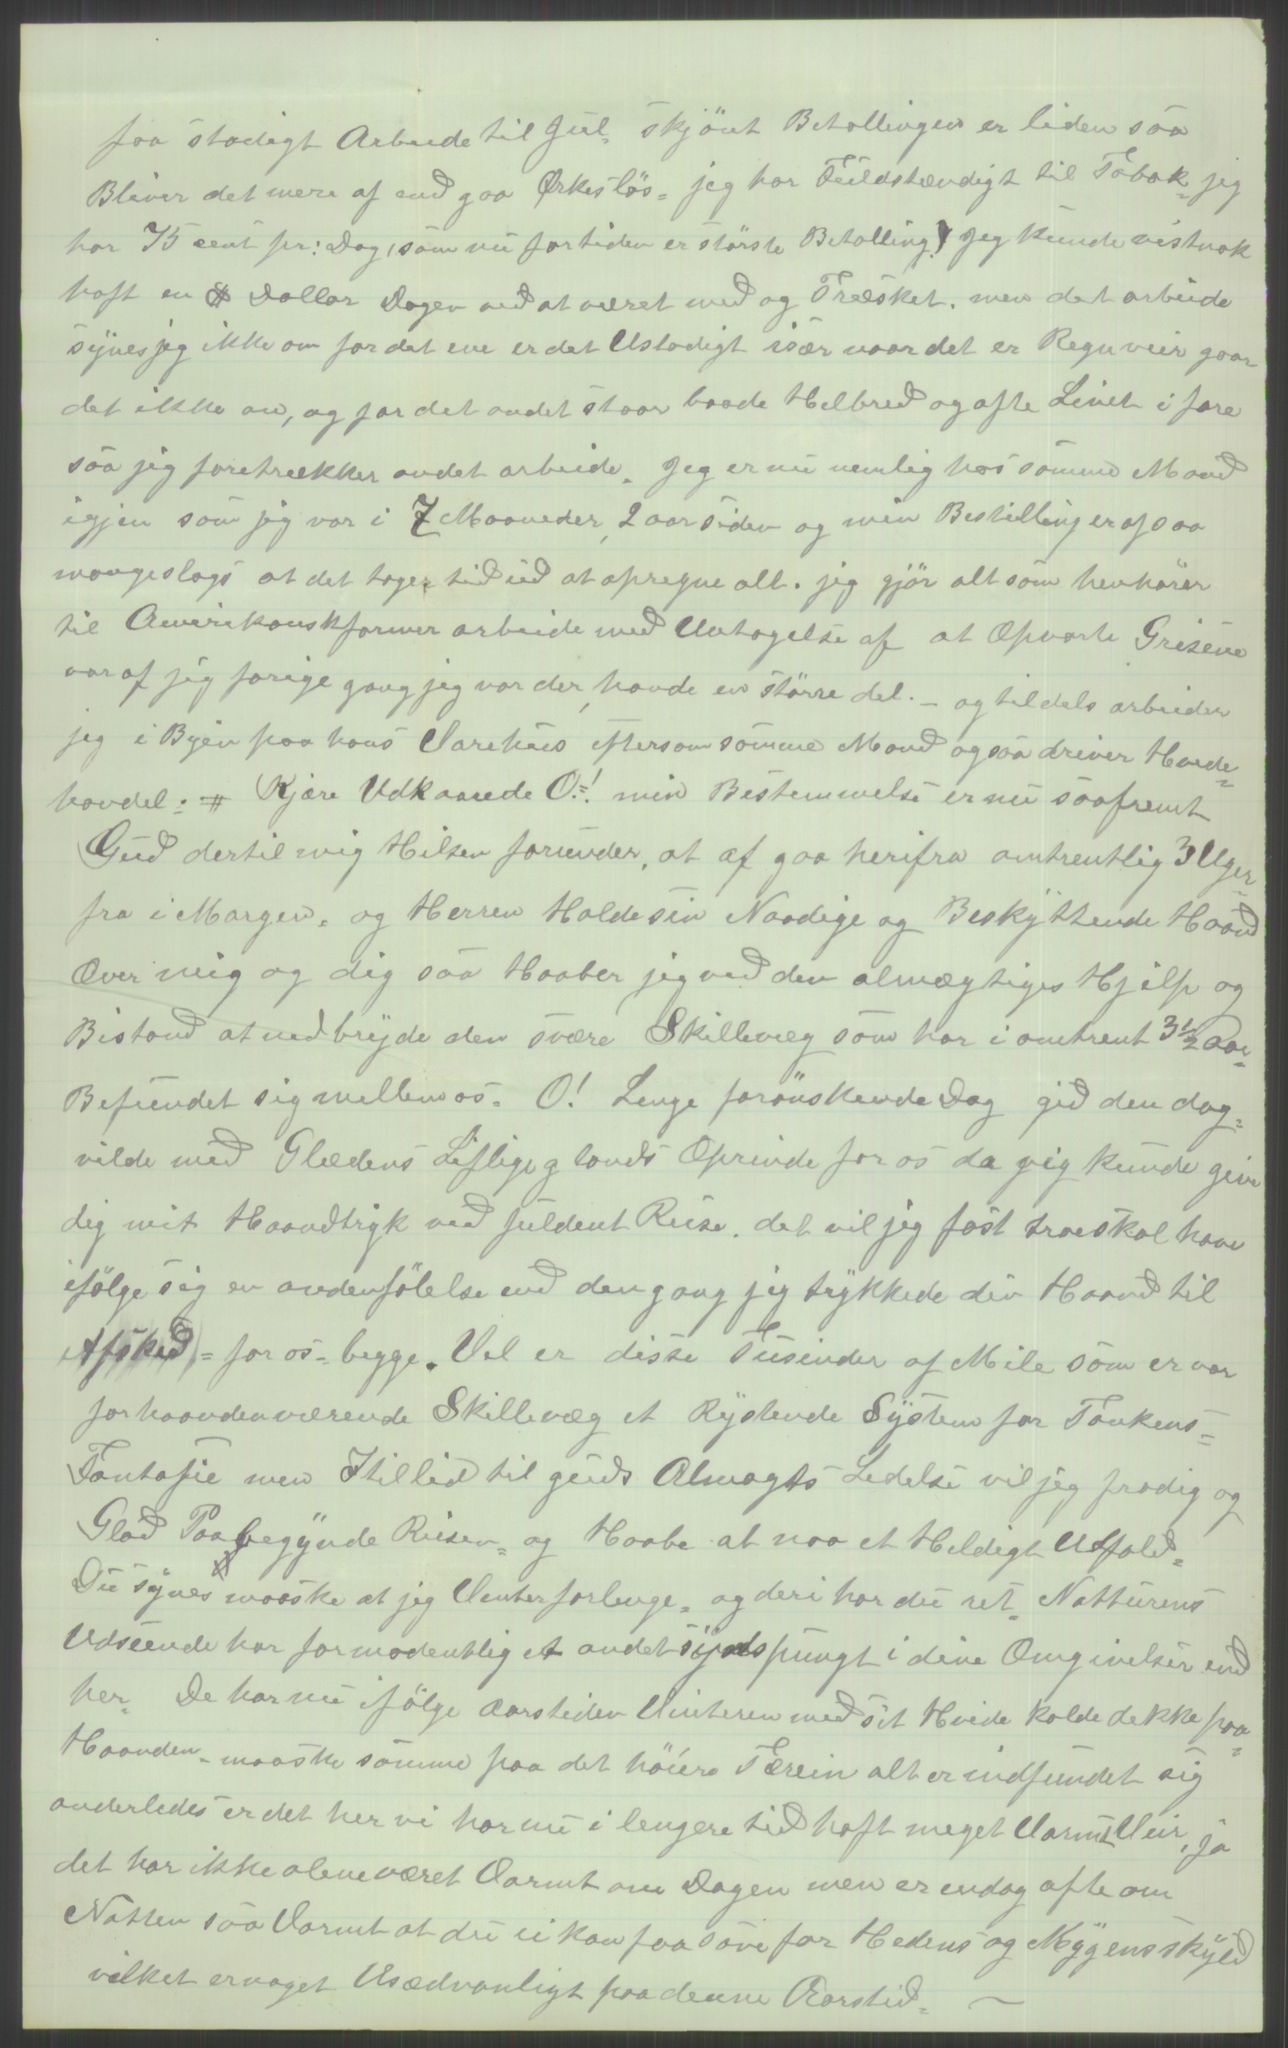 faa stadigt Arbeide til Jul, skjönt Betallingen er liden saa
Bliver det mere af end gaa Ørkeslös = jeg har Fuldstændigt til Tobak, jeg
har 75 cent pr: Dag, som nu fortiden er störste Betalling) Jeg kunde vistnok
haft en Dollar Dagen ved at været med og Træsket. men det arbeide
synes jeg ikke om for det ene er det Ustadigt især naar det er Regnveir gaar
det ikke an, og for det andet staar baade Helbred og ofte Livet i fare
saa jeg foretrækker andet arbeide. Jeg er nu nemlig hos samme Mand
igjen som jeg var i 7 Maaneder, 2 aar siden og min Bestilling er af saa
mangeslags at det tager tid ud at opregne alt. jeg gjör alt som henhörer
til Amerikanskfarmer arbeide med Untagelse af at Opvarte Grisene
varaf jeg forige gang jeg var der, havde en större del. – og tildels arbeider
jeg i Byen paa hans Varehus eftersom samme Mand ogsaa driver Hvede=
handel. = # Kjære Udkaarede O.=! min Bestemmelse er nu saafremt
Gud dertil mig Hilsen forunder, at af gaa herifra omtrentlig 3 Uger
fra i Morgen. og Herren Holde sin Naadige og Beskyttende Haand
Over mig og dig saa Haaber jeg ved den almægtiges Hjelp og
Bistand at nedbryde den svære Skillevæg som har i omtrent 3½ Aar=
Befundet sig mellem os. O! Lenge forönskende Dag gid den dag=
vilde med Glædens Liflige glands Oprinde for os da jeg kunde give
dig mit Haandtryk ved fuldent Reise. det vil jeg fast troe skal have
ifölge sig en andenfölelse end den gang jeg trykkede din Haand til
Afsked = for os = begge. Vel er disse Tusinder af Mile som er vor
forhaandenværende Skillevæg et Rystende System for Tankens=
Fantasie men I tillid til guds Almagts Ledelse vil jeg frodig og
Glad Paabegynde Reisen = og Haabe at naa et Heldigt Utfald=
Du synes maaske at jeg Venter forlenge = og deri har du ret. Natturens
Udseende har formodentlig et andet synspungt i dine Omgivelser end
her. De har nu ifölge aarstiden Vinteren med sit Hvide kolde dekke paa=
Haanden = maaske samme paa det höiere Terein alt er indfundet sig
anderledes er det her vi har nu i lengere tid haft meget Varmt Veir, ja
det har ikke alene været Varmt om Dagen men er endog ofte om
Natten saa Varmt at du ei kan faa sove for Hedens og Myggens skyld
vilket er noget Usædvanligt paa denne Aarstid. —